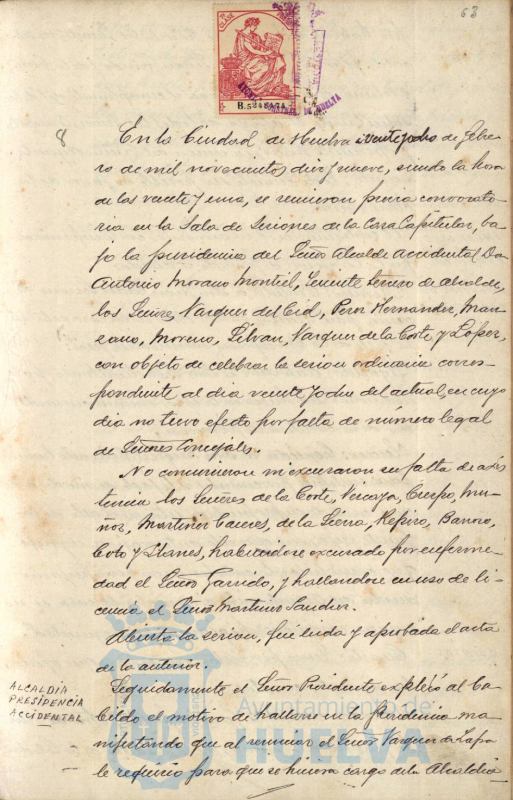 63
B.5248474
8
En la Ciudad de Huelva a veinte y ocho de Febre
ro de mil novecientos diez y nueve, siendo la hora
de las veinte y una, se reunieron previa convocato
ria en la Sala de Sesiones de la Casa Capitular, ba
jo la presidencia del Señor Alcalde Accidental Don
Antonio Morano Montiel, Teniente tercero de alcalde,
los Señores Vazquez del Cid, Perez Hernandez, Man
zano, Moreno, Silvan, Vazquez de la Corte y Lopez,
con objeto de celebrar la sesion ordinaria corres
pondiente al dia veinte y seis del actual, en cuyo
dia no tuvo efecto por falta de número legal
de Señores Concejales.
No concurrieron ni excusaron su falta de asis
tencia los Señores de la Corte, Vizcaya, Crespo, Mu
ñoz, Martinez Caceres, de la Sierra, Barroso,
Coto y Llanes, habiendose excusado por enferme
dad el Señor Garrido, y hallandose en uso de li
cencia el Señor Martinez Sanchez.
Abierta la sesion, fué leida y aprobada el acta
de la anterior.
ALCALDIA
PRESIDENCIA
ACCIDENTAL
Seguidamente el Señor Presidente explicó al Ca
bildo el motivo de hallarse en la Presidencia ma
nifestando que al renunciar el Señor Vazquez de Zafra
le requirio para que se hiciera cargo de la Alcaldia
Ayuntamiento de
HUELVA